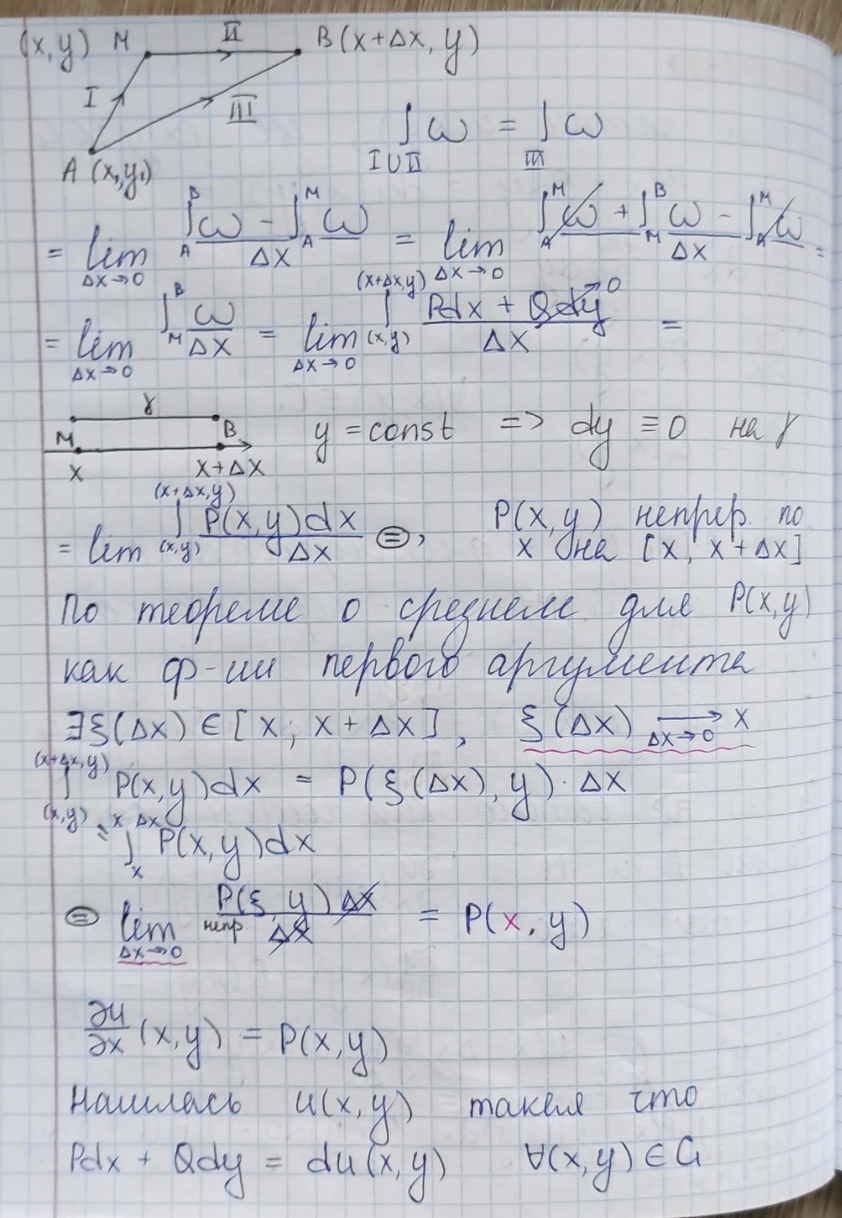 (x,y) M II B(x+Δx, y)
I III
A (x₁,y₁)
∫_{I∪II} ω = ∫_{III} ω
= lim_{Δx→0} (∫_A^B ω - ∫_A^M ω)/Δx = lim_{Δx→0} (∫_A^M ω + ∫_M^B ω - ∫_A^M ω)/Δx =
= lim_{Δx→0} ∫_M^B ω/Δx = lim_{Δx→0} ∫_{(x,y)}^{(x+Δx,y)} (Pdx + Qdy→0)/Δx =
γ
M B y = const => dy ≡ 0 на γ
x x+Δx
= lim ∫_{(x,y)}^{(x+Δx,y)} P(x,y)dx/Δx ⊜, P(x,y) непрер. по
x на [x, x+Δx]
По теореме о среднем для P(x,y)
как ф-ии первого аргумента
∃ξ(Δx) ∈ [x; x+Δx], ξ(Δx) →_{Δx→0} x
∫_{(x,y)}^{(x+Δx,y)} P(x,y)dx = P(ξ(Δx), y)·Δx
= ∫_x^{x Δx} P(x,y)dx
⊜ lim_{Δx→0} непр. P(ξ, y)Δx/Δx = P(x, y)
∂u/∂x (x,y) = P(x,y)
Нашлась u(x,y) такая что
Pdx + Qdy = du(x,y) ∀(x,y)∈G